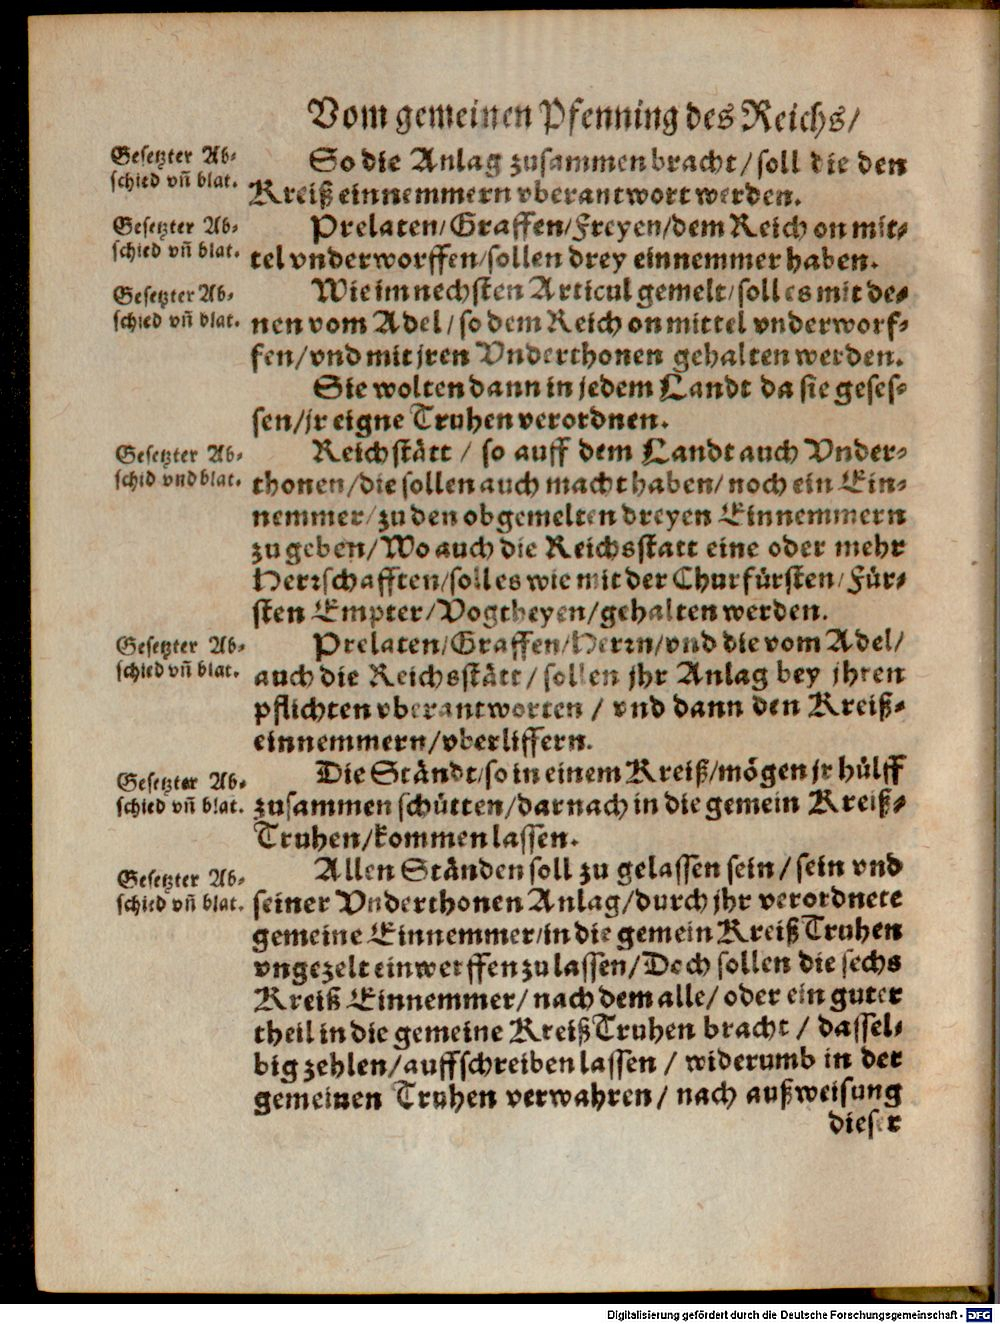 Vom gemeinen Pfenning des Reichs/
Gesetzter Ab-
schied vñ blat.
So die Anlag zusammen bracht/ soll die den
Kreiß einnemmern vberantwort werden.
Gesetzter Ab-
schied vñ blat.
Prelaten/ Graffen/ Freyen/ dem Reich on mit-
tel vnderworffen/ sollen drey einnemmer haben.
Gesetzter Ab-
schied vñ blat.
Wie im nechsten Articul gemelt/ soll es mit de-
nen vom Adel/ so dem Reich on mittel vnderworf-
fen/ vnd mit jren Vnderthonen gehalten werden.
Sie wolten dann in jedem Landt da sie geses-
sen/ jr eigne Truhen verordnen.
Gesetzter Ab-
schid vnd blat.
Reichstätt / so auff dem Landt auch Vnder-
thonen/ die sollen auch macht haben/ noch ein Ein-
nemmer/ zu den obgemelten dreyen Einnemmern
zu geben/ Wo auch die Reichsstatt eine oder mehr
Herrschafften/ soll es wie mit der Churfürsten/ Für-
sten Empter/ Vogtheyen/ gehalten werden.
Gesetzter Ab-
schied vñ blat.
Prelaten/ Graffen/ Herrn/ vnd die vom Adel/
auch die Reichsstätt/ sollen jhr Anlag bey jhren
pflichten vberantworten / vnd dann den Kreiß-
einnemmern/ vberliffern.
Gesetzter Ab-
schied vñ blat.
Die Ständt/ so in einem Kreiß/ mögen jr hülff
zusammen schütten/ darnach in die gemein Kreiß-
Truhen/ kommen lassen.
Gesetzter Ab-
schied vñ blat.
Allen Ständen soll zu gelassen sein/ sein vnd
seiner Vnderthonen Anlag/ durch jhr verordnete
gemeine Einnemmer/ in die gemein Kreiß Truhen
vngezelt einwerffen zu lassen/ Doch sollen die sechs
Kreiß Einnemmer/ nach dem alle/ oder ein guter
theil in die gemeine Kreiß Truhen bracht / dassel-
big zehlen/ auffschreiben lassen / widerumb in der
gemeinen Truhen verwahren/ nach außweisung
dieser
Digitalisierung gefördert durch die Deutsche Forschungsgemeinschaft - DFG